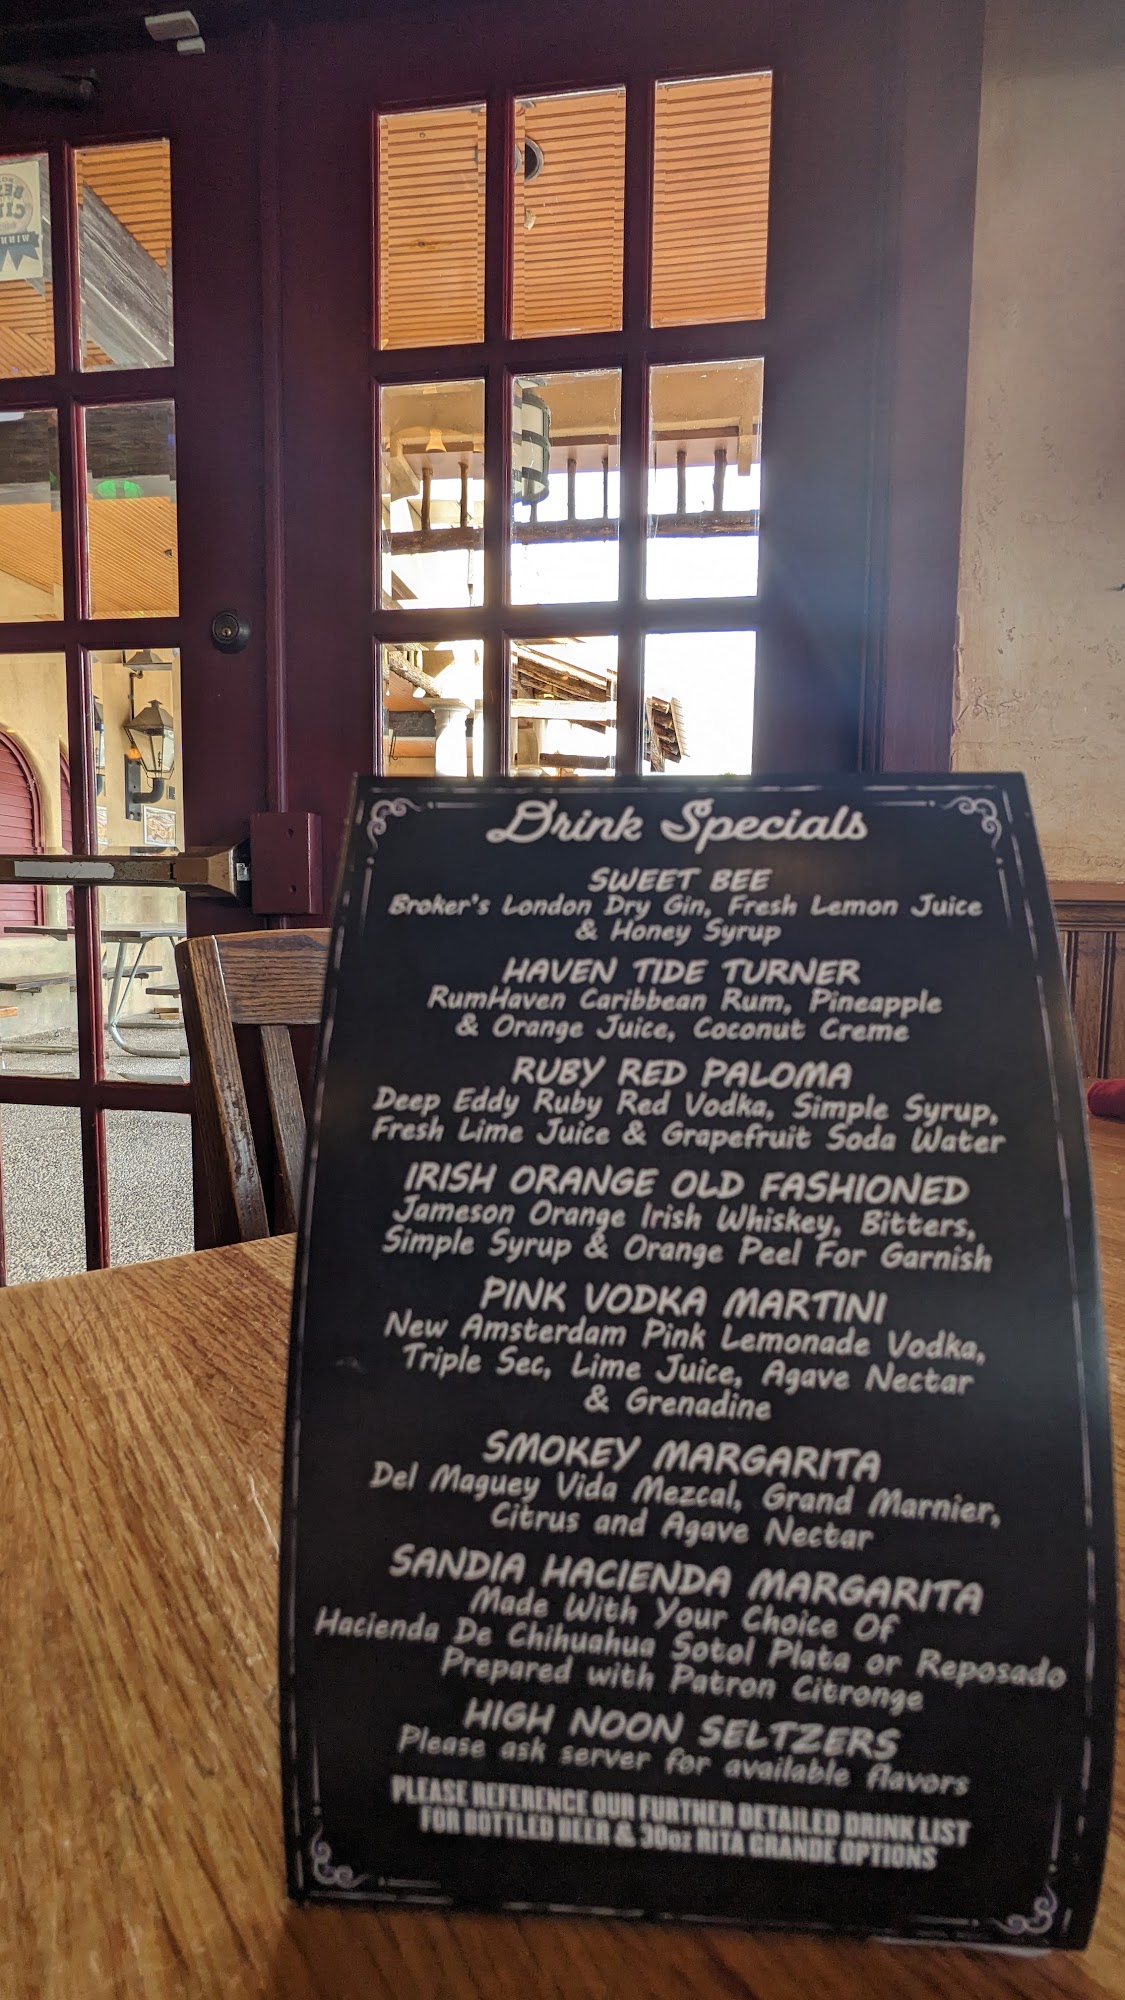 Drink Specials
SWEET BEE
Broker's London Dry Gin, Fresh Lemon Juice
& Honey Syrup
HAVEN TIDE TURNER
RumHaven Caribbean Rum, Pineapple
& Orange Juice, Coconut Creme
RUBY RED PALOMA
Deep Eddy Ruby Red Vodka, Simple Syrup,
Fresh Lime Juice & Grapefruit Soda Water
IRISH ORANGE OLD FASHIONED
Jameson Orange Irish Whiskey, Bitters,
Simple Syrup & Orange Peel For Garnish
PINK VODKA MARTINI
New Amsterdam Pink Lemonade Vodka,
Triple Sec, Lime Juice, Agave Nectar
& Grenadine
SMOKEY MARGARITA
Del Maguey Vida Mezcal, Grand Marnier,
Citrus and Agave Nectar
SANDIA HACIENDA MARGARITA
Made With Your Choice Of
Hacienda De Chihuahua Sotol Plata or Reposado
Prepared with Patron Citronge
HIGH NOON SELTZERS
Please ask server for available flavors
PLEASE REFERENCE OUR FURTHER DETAILED DRINK LIST
FOR BOTTLED BEER & 30oz RITA GRANDE OPTIONS